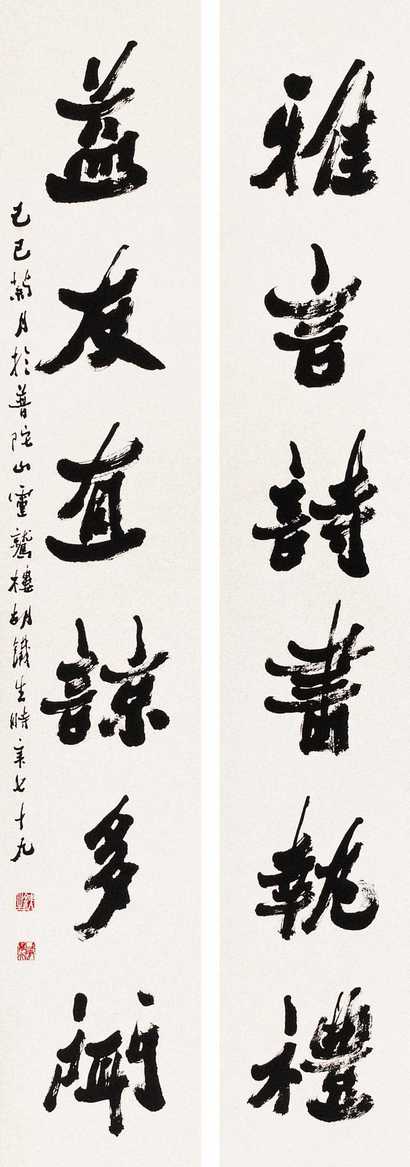 雅言詩書執禮
益友直諒多聞
乙巳菊月於普陀山靈鷲樓胡鐵生時年七十九